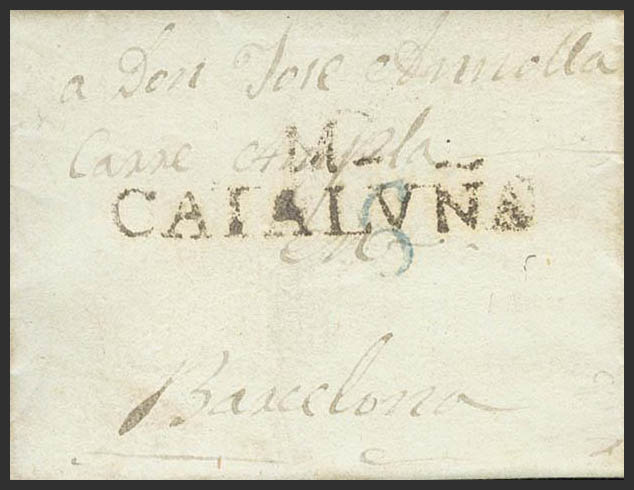 a Don Jose Armolla
Carre Ampla
M
CATALVÑA
8
Barcelona